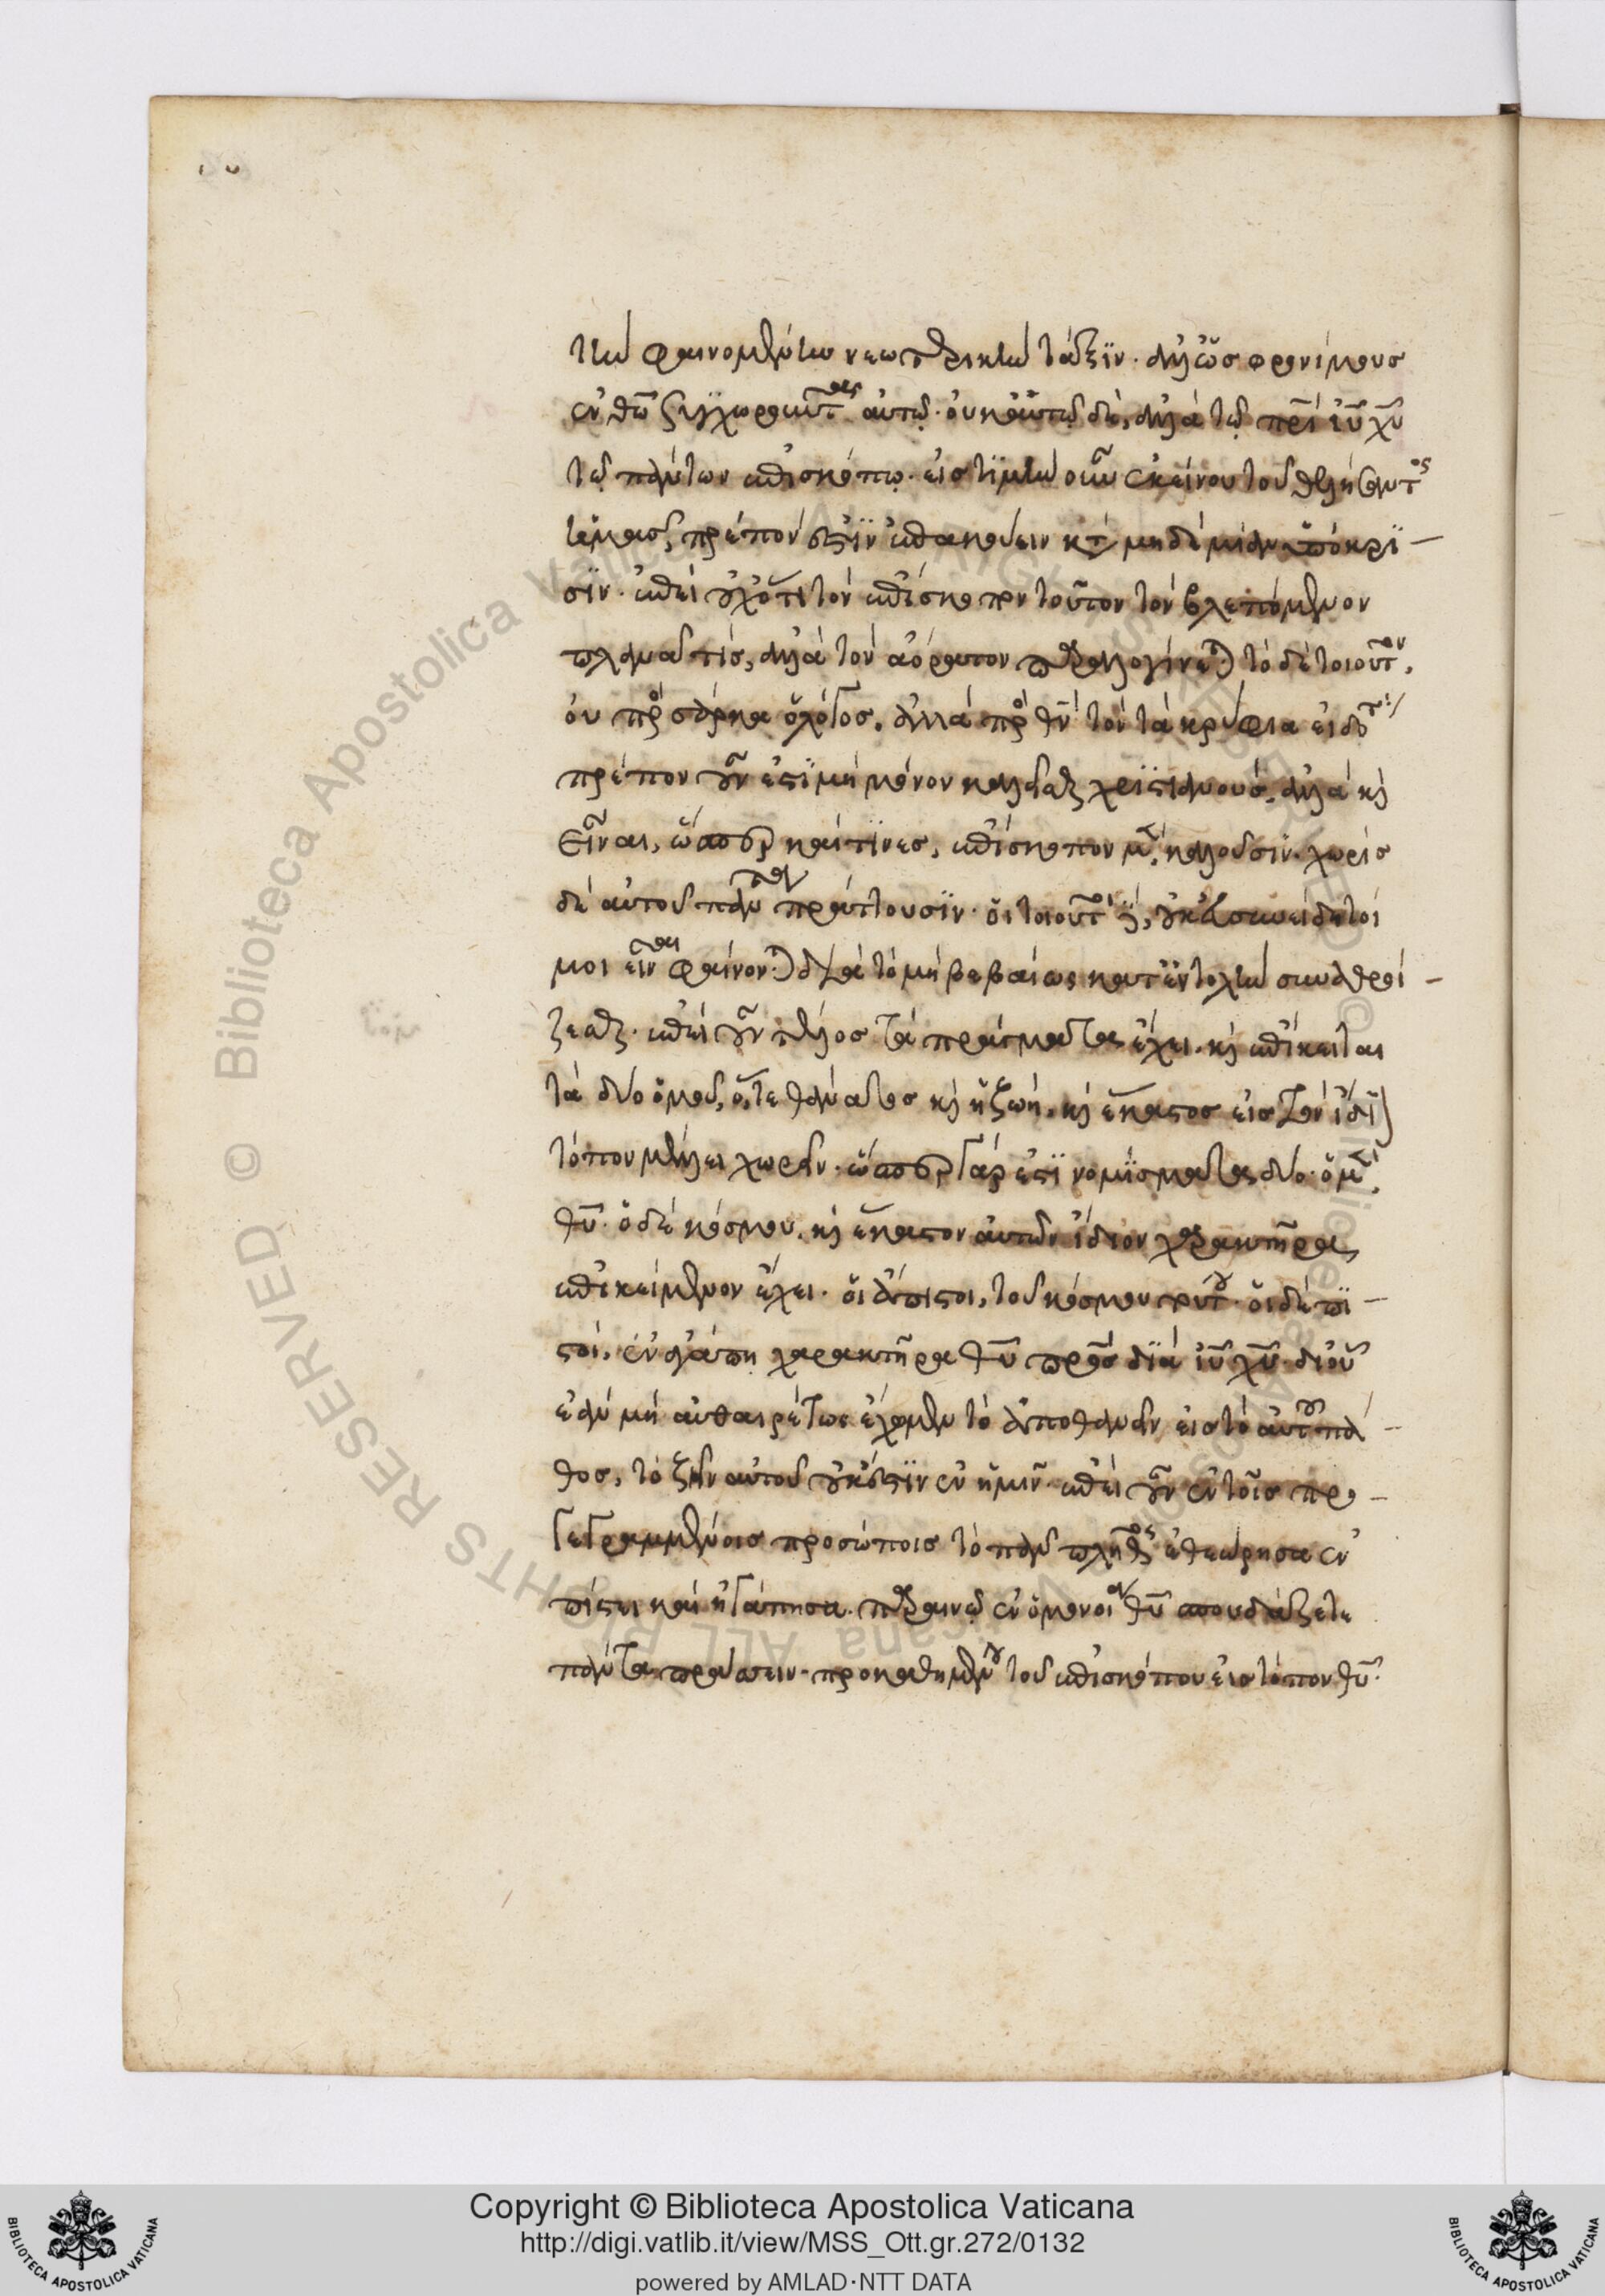 τὴν φαινομένην νεωτερικὴν τάξϊν. ἀλλ' ὡς φρονίμους
ἐν θ͞ω συγχωροῦντας αὐτῷ. οὐκ αὐτῷ δὲ, ἀλλὰ τῷ π͞ρι ἰ͞υ χ͞υ
τῷ πάντων ἐπισκόπῳ. εἰς τϊμὴν οὖν ἐκείνου τοῦ θελήσαντος
ἡμᾶς, πρέπον ἐστὶν ἐπακούειν κατὰ μηδεμίαν ὑπόκρϊ
σϊν. ἐπεὶ οὐχ ὅτι τὸν ἐπίσκοπον τοῦτον τὸν βλεπόμενον
πλανᾷ τὶς, ἀλλὰ τὸν ἀόρατον παραλογίζεται τὸ δὲ τοιοῦτον,
οὐ πρὸς σάρκα ὁ λόγος. ἀλλὰ πρὸς θ͞ν τὸν τὰ κρύφια εἰδότα:
πρέπον οὖν ἐστϊ μὴ μόνον καλεῖσθαι χρϊστιανοὺς, ἀλλὰ καὶ
εἶναι, ὥσπερ καὶ τϊνες, ἐπίσκοπον μὲν, καλοῦσϊν. χωρὶς
δὲ αὐτοῦ πάντα πράττουσϊν. οἱ τοιοῦτοι δὲ, οὐκ εὐσυνείδητοί
μοι εἶναι φαίνονται διὰ τὸ μὴ βεβαίως κατ' ἐντολὴν συναθροί
ζεσθαι. ἐπεὶ οὖν τέλος τὰ πράγματα ἔχει. καὶ ἐπίκειται
τὰ δύο ὁμοῦ, ὅ, τε θάνατος καὶ ἡ ζωή. καὶ ἕκαστος εἰς τὸν ἴδϊον
τόπον μέλλει χωρεῖν. ὥσπερ γάρ ἐστϊ νομϊσματα δύο. ὁ μὲν,
θ͞υ. ὁ δὲ κόσμου. καὶ ἕκαστον αὐτῶν ἴδιον χαρακτῆρα
ἐπικείμενον ἔχει. οἱ ἄπιστοι, τοῦ κόσμου τούτου. οἱ δὲ πϊ
στοὶ, ἐν ἀγάπῃ χαρακτῆρα θ͞υ π͞ρς δϊὰ ἰ͞υ χ͞υ. δι' οὗ
ἐὰν μὴ αὐθαιρέτως ἔχωμεν τὸ ἀποθανεῖν εἰς τὸ αὐτοῦ πά
θος, τὸ ζῆν αὐτοῦ οὐκ ἔστϊν ἐν ἡμῖν. ἐπεὶ οὖν ἐν τοῖς προ
γεγραμμένοις προσώποις τὸ πᾶν πλῆθος ἐθεώρησα ἐν
πίστει καὶ ἠγάπησα. παραινῶ ἐν ὁμονοίᾳ θ͞υ σπουδάζετε
πάντα πράσσειν. προκαθημένου τοῦ ἐπισκόπου εἰς τόπον θ͞υ.
Copyright © Biblioteca Apostolica Vaticana
http://digi.vatlib.it/view/MSS_Ott.gr.272/0132
powered by AMLAD·NTT DATA